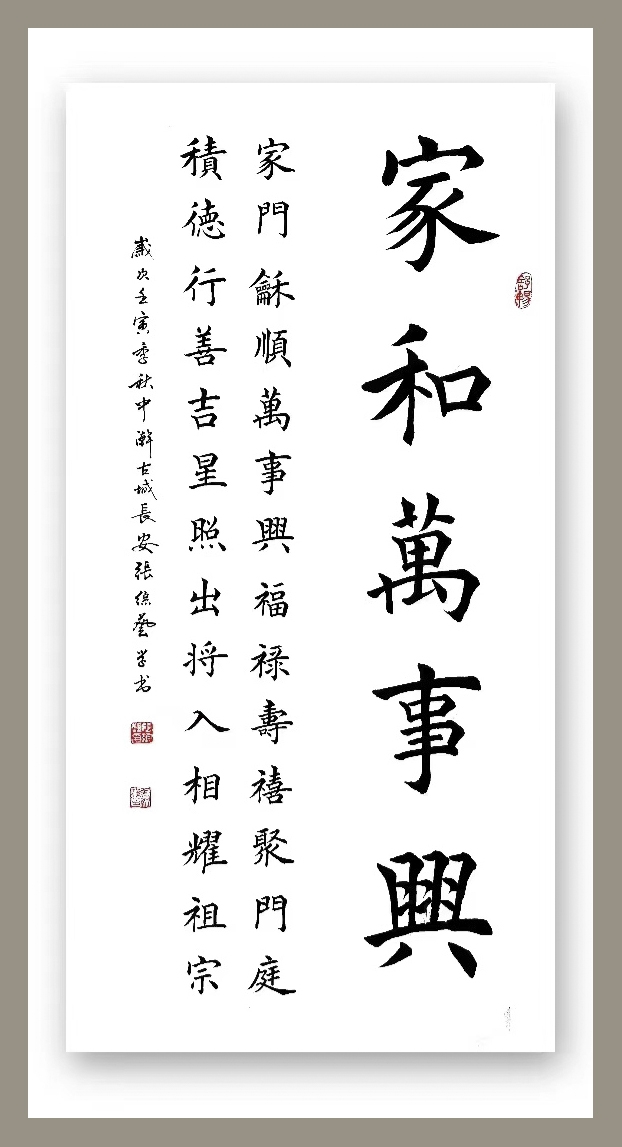 家和萬事興
家門龢順萬事興福禄壽禧聚門庭
積德行善吉星照出将入相耀祖宗
歲次壬寅季秋中澣古城長安張綜藝学书